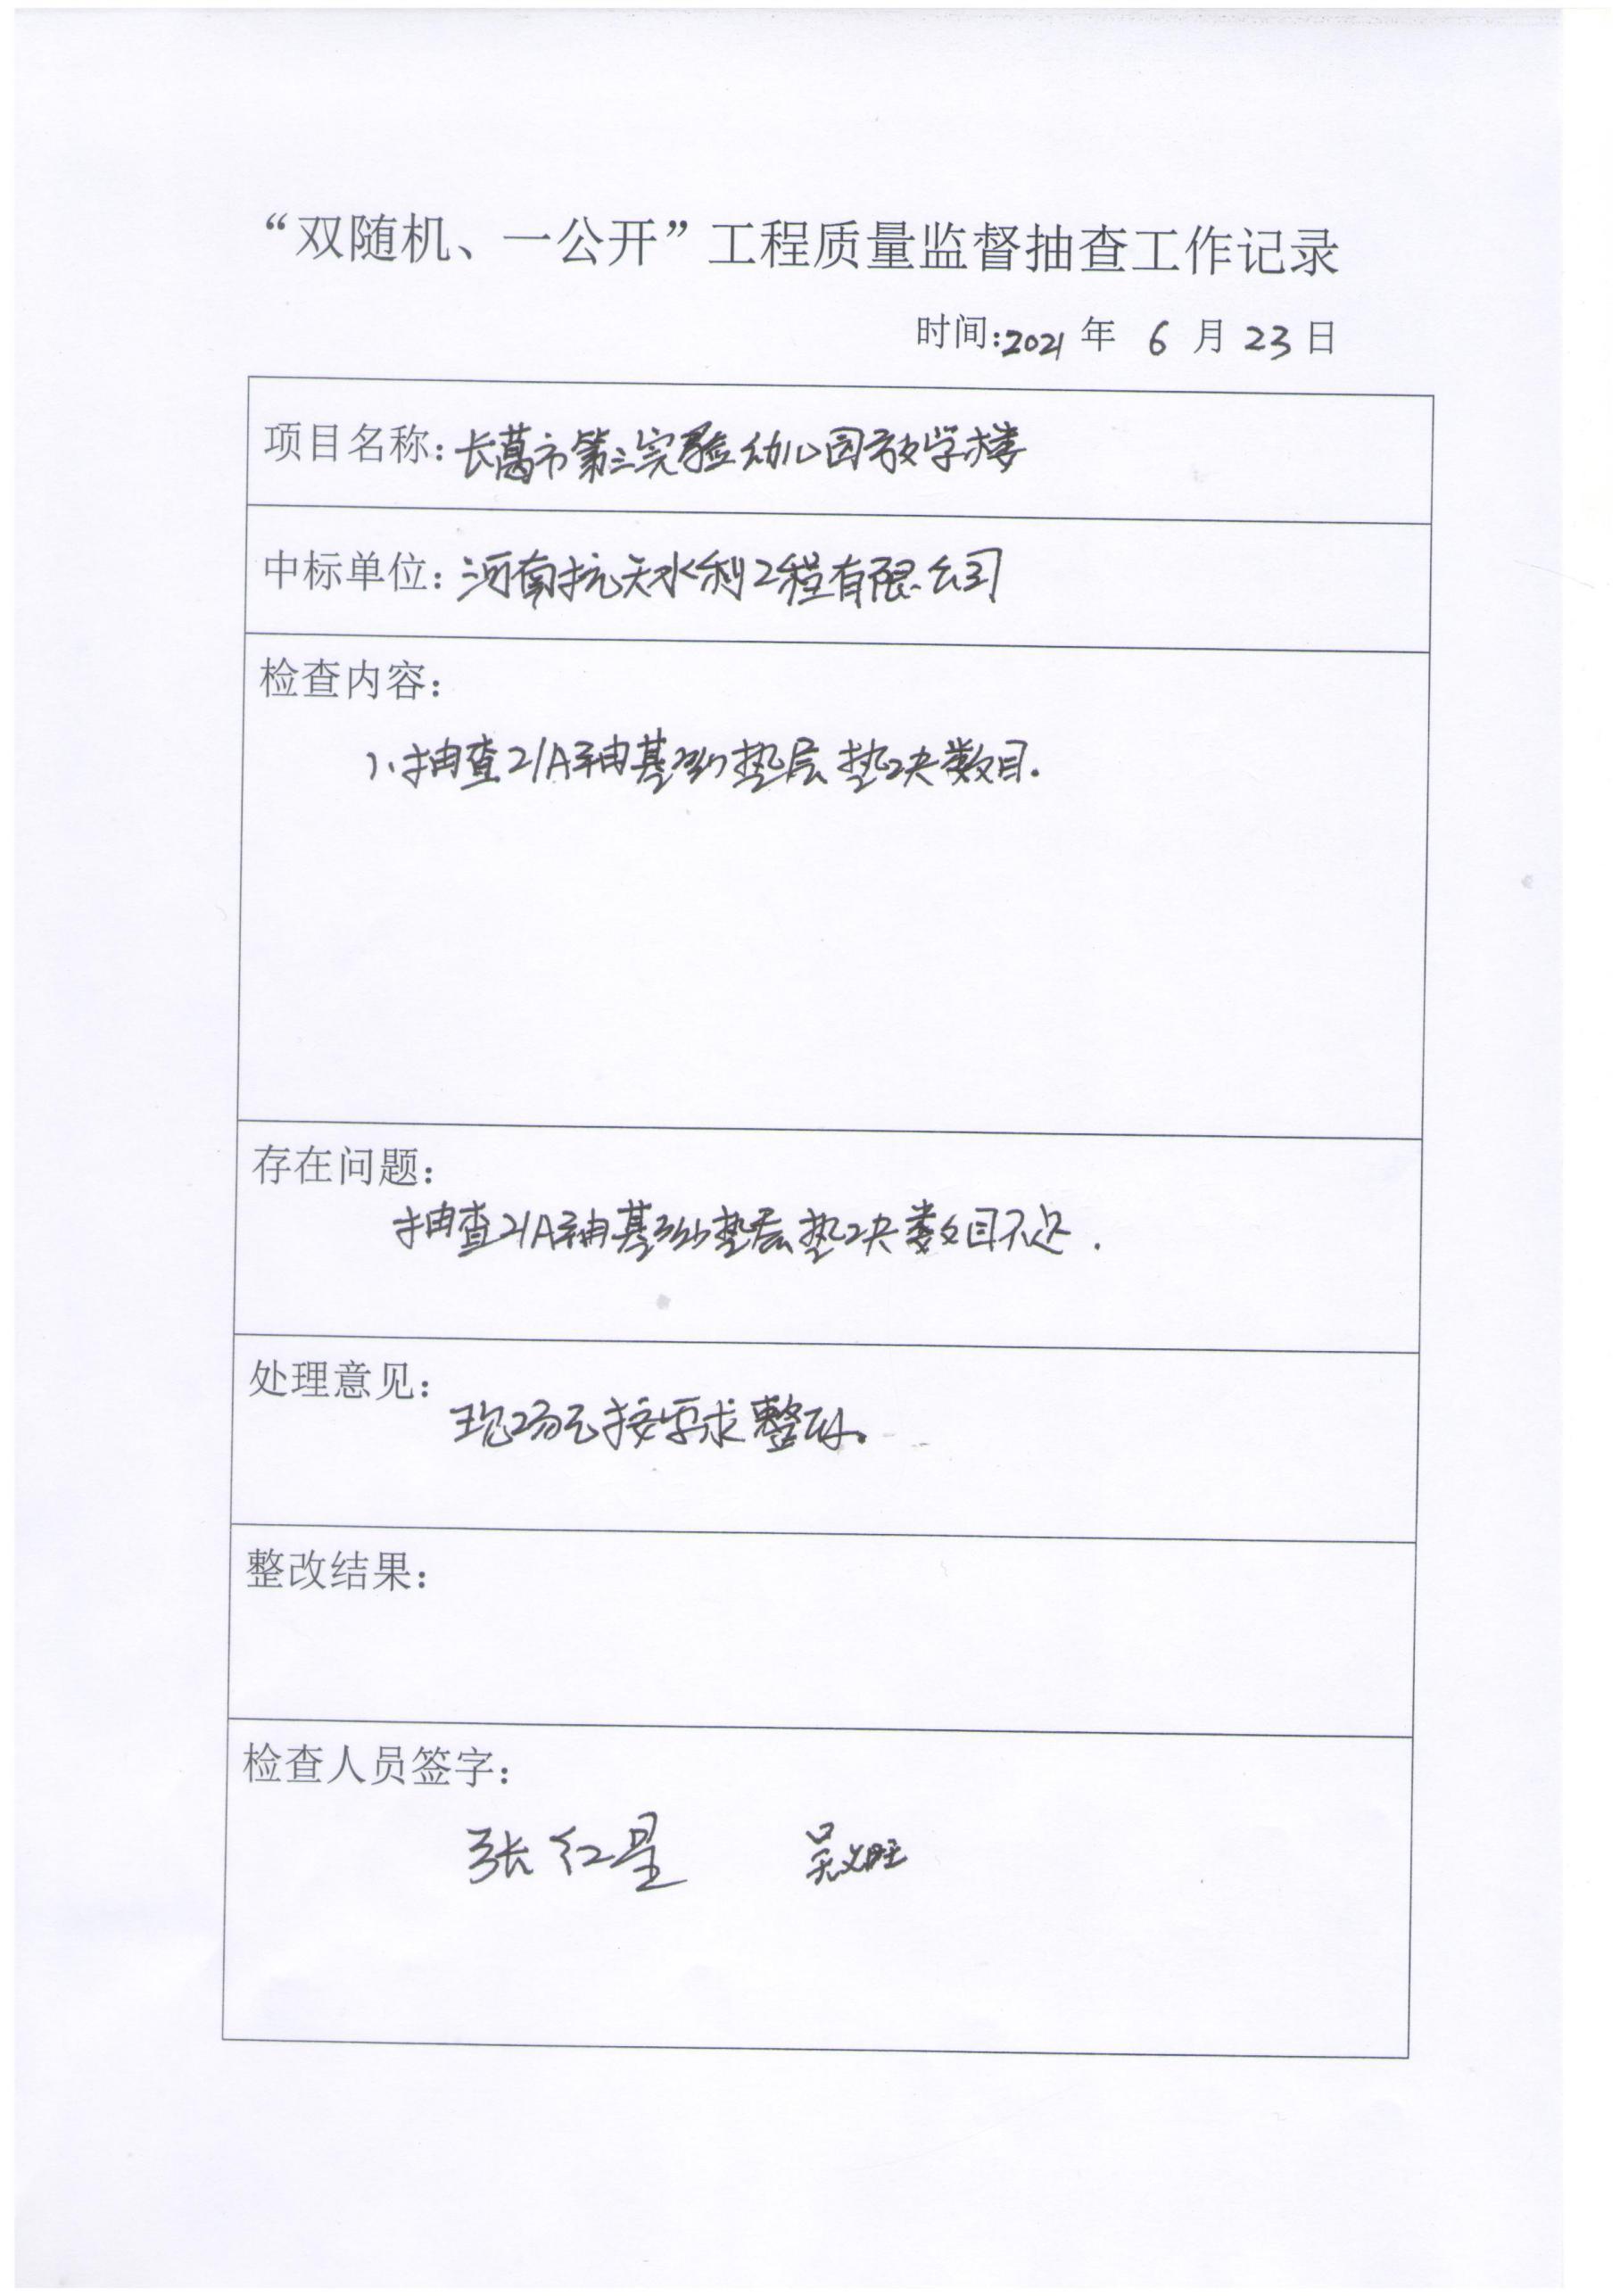 “双随机、一公开”工程质量监督抽查工作记录
时间:2021 年 6 月 23 日
项目名称:长葛市第三实验幼儿园教学楼
中标单位:河南抗天水利工程有限公司
检查内容:
1、抽查2/A轴基础垫层垫块数目.
存在问题:
抽查2/A轴基础垫层垫块数目不足.
处理意见:
现场已按要求整改.
整改结果:
检查人员签字:
张红星 吴义旺